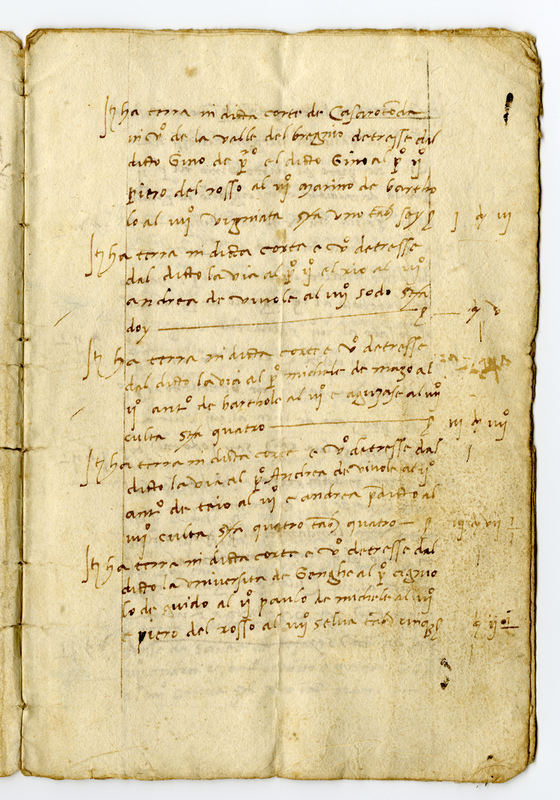 It ha terra in dicta corte de Casarotonda
in vo de la valle del bregno detresse dal
ditto Gino de po el ditto Gino al po ijo
piero del rosso al iijo marino de bartho
lo al iiijo vignata sta uno tao sey
It ha terra in dicta corte e vo detresse
dal ditto la via al po ijo el rio al iijo
andrea de vivole al iiijo sodo sta
doy
It ha terra in dicta corte e vo detresse
dal ditto la via al po michele de mazo al
ijo anto de barthole al iijo e al iiijo
culta sta quatro
It ha terra in dicta corte e vo ditresse dal
ditto la via al po Andrea de vivole al ijo
anto de al iijo e andrea pditto al
iiijo culta sta quatro tao quatro
It ha terra in dicta corte e vo detresse dal
ditto la universita de Genghe al po
lo de guido al ijo paulo de michele al iijo
e piero del rosso al iiijo selva tao cinq